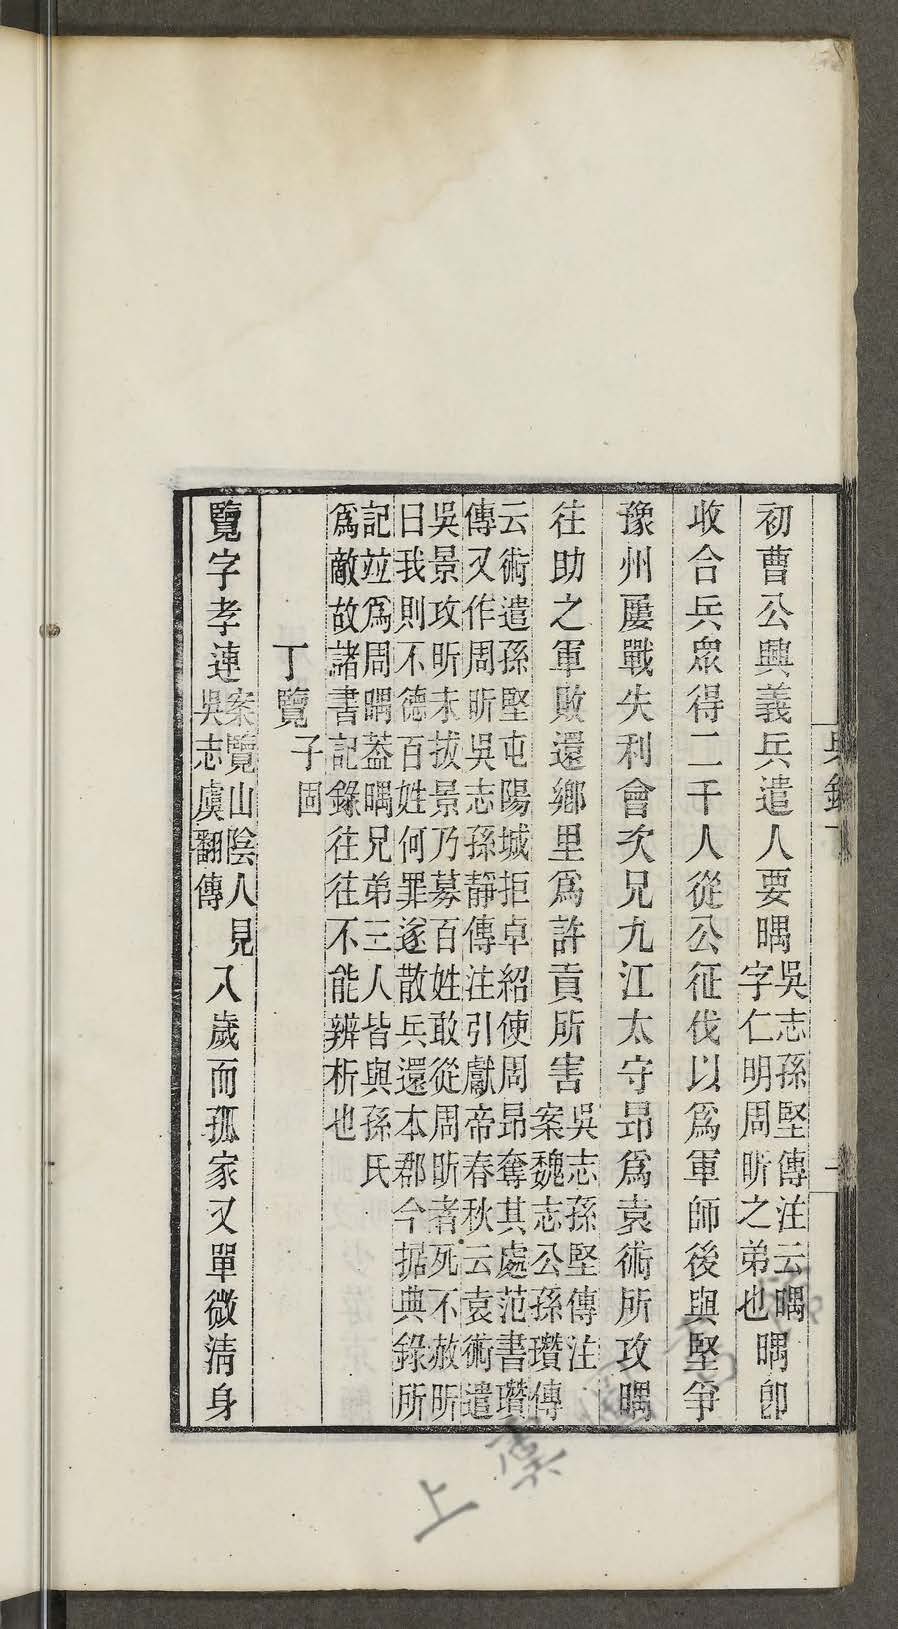 典錄下
一
初曹公興義兵遣人要喁吳志孫堅傳注云喁字仁明周昕之弟也喁卽
收合兵眾得二千人從公征伐以爲軍師後與堅爭
豫州屢戰失利會次兄九江太守昂爲袁術所攻喁
往助之軍敗還鄉里爲許貢所害吳志孫堅傳注案魏志公孫瓚傳
云術遣孫堅屯陽城拒卓紹使周昂奪其處范書瓚
傳又作周昕吳志孫靜傳注引獻帝春秋云袁術遣
吳景攻昕未拔景乃募百姓敢從周昕者死不赦昕
曰我則不德百姓何罪遂散兵還本郡今据典錄所
記竝爲周喁葢喁兄弟三人皆與孫氏
爲敵故諸書記錄往往不能辨析也
丁覽 子固
覽字孝連案覽山陰人見吳志虞翻傳八歲而孤家又單微清身
上虞